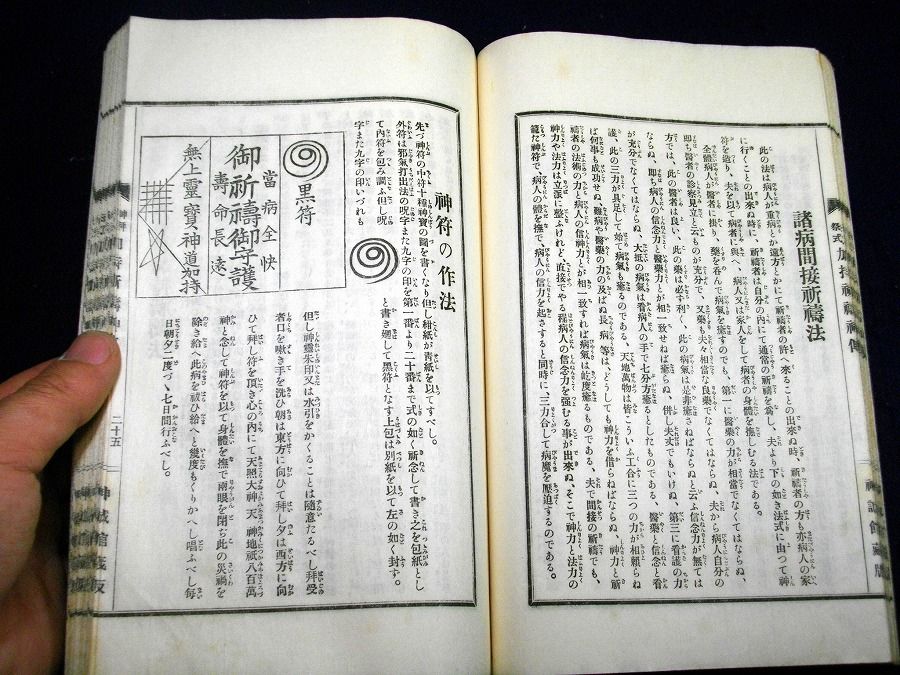 諸病間接祈禱法
此の法は病人が重病とか遠方とかにて祈禱者の許へ來ることの出來ぬ時、祈禱者の方も亦病人の家
に行くことの出來ぬ時に、祈禱者は自分の内にて通常の祈禱を爲し、夫より下の如き法式に由つて神
符を造り、夫を以て病者に與へ、病人又は家人をして病者の身體を撫しむる法である。
全體病人が醫者に掛り、藥を呑んで病氣を癒すのでも、第一に醫藥の力が相當でなくてはならぬ、
即ち醫者の診察見立と云ものが充分で、又藥も夫々相當な良藥でなくてはならぬ、夫から病人自分の
方では、此の醫者は良い、此の藥は必ず利く、此の病氣は是非癒さねばならぬと云ふ信念力が無ては
ならぬ、即ち病人の信念力と醫藥力とが相一致せねば癒らぬ、併し夫丈でもいけぬ、第三に看護の力
が充分でなくてはならぬ、大抵の病氣は看病人の手で七分方癒るとしたものである、醫藥と信念と看
護、此の三力が具足して始て病氣も癒るのである、天地萬物は皆こういふ工合に三つの力が相賴らね
ば何事も成功せぬ、難病や醫藥の力の及ばぬ長病等は、どうしても神力を借らねばならぬ、神力と祈
禱者の法術の力と、病人の信神力とが相一致すれば病氣は屹度癒るものである、夫で間接の祈禱でも、
神力や法力は立派に整ふけれど、直接でやる程病人の信念力を強むる事が出來ぬ、そこで神力と法力の
籠た神符で、病人の體を撫で、病人の信力を起さすると同時に、三力合して病魔を壓迫するのである。
神符の作法
先づ神符の中符十種神寶の圖を書くなり但し紺紙が靑紙を以てすべし。
外符は邪氣打出法の呪字また九字の印を第一番より二十番まで式の如く祈念して書き之を包紙とし
て内符を包み調ふ但し呪
字また九字の印いづれも
と書き廻して黑符となす上包は別紙を以て左の如く封す。
黑符
當病全快
御祈禱御守護
壽命長遠
無上靈寶神道加持
但し神靈朱印又は水引をかくることは隨意たるべし拜受
者口を嗽き手を洗ひ朝は東方に向ひて拜し夕は西方に向
ひて拜し符を頂き心の内にて天照大神、天神地祇八百萬
神と念して神符を以て身體を撫で兩眼を閉ち此の災禍を
除き給へ此病を祓ひ給へと幾度もくりかへし唱ふべし每
日朝夕二度づゝ七日間行ふべし。
二十五